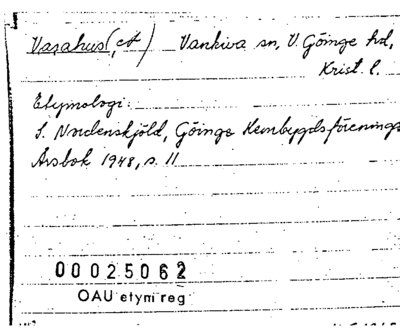 Vasahus(et) Vankiva sn, V. Göinge hd,
Krist. l.
Etymologi:
S. Nordenskjöld, Göinge Hembygdsförenings
Årsbok 1948, s. 11
00025062
OAU etym reg